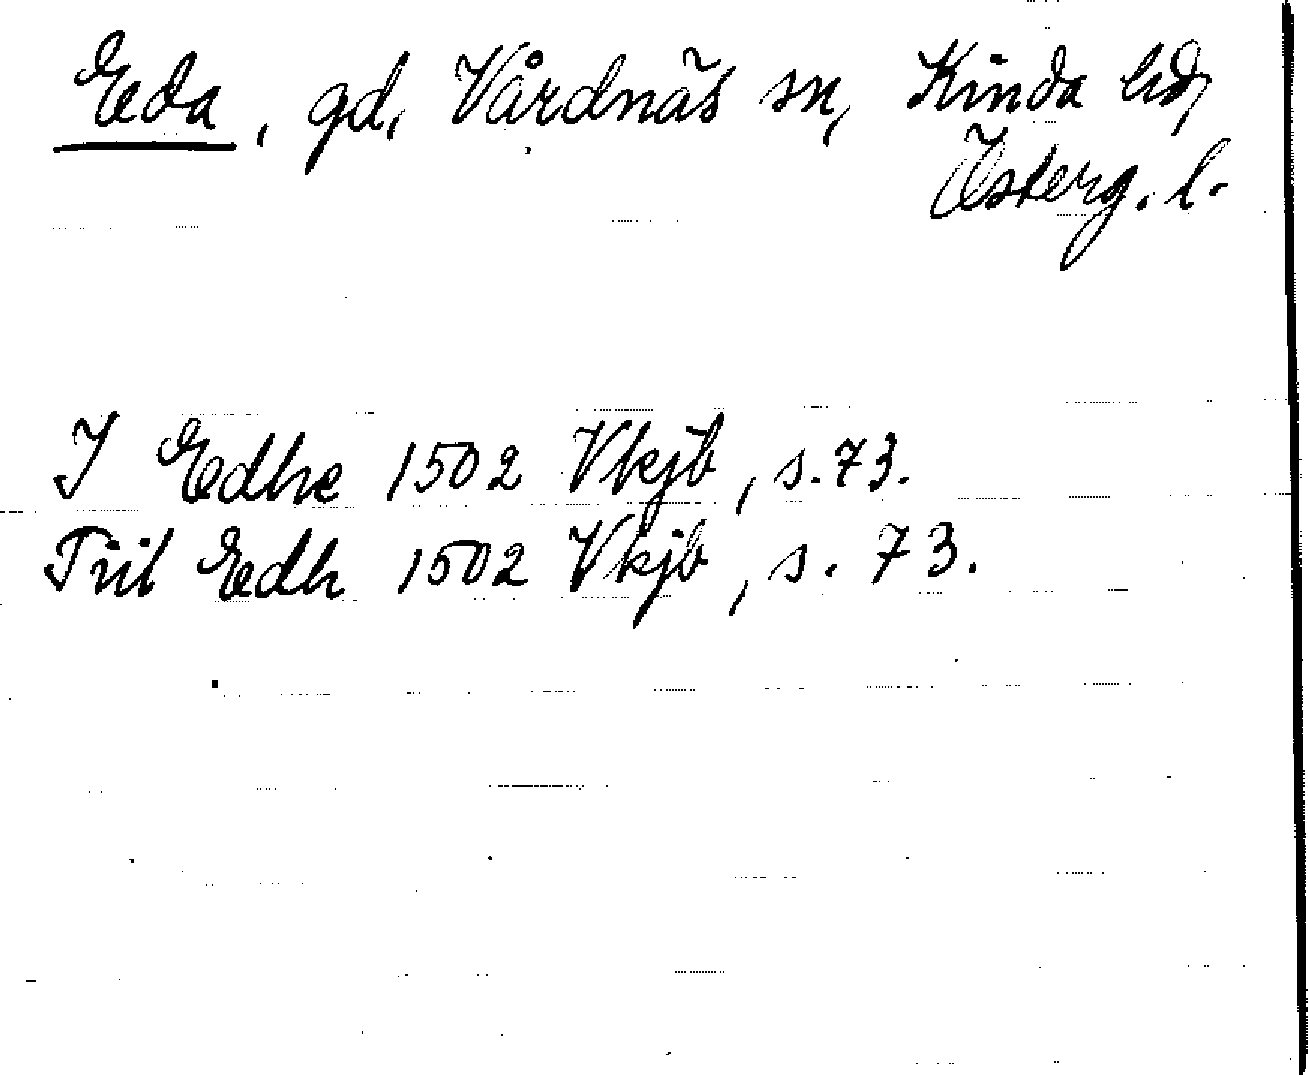 Eda, gd, Vårdnäs sn, Kinda hd,
Österg. l.
I Edhe 1502 Vkjb, s. 73.
Tiil Edh 1502 Vkjb, s. 73.